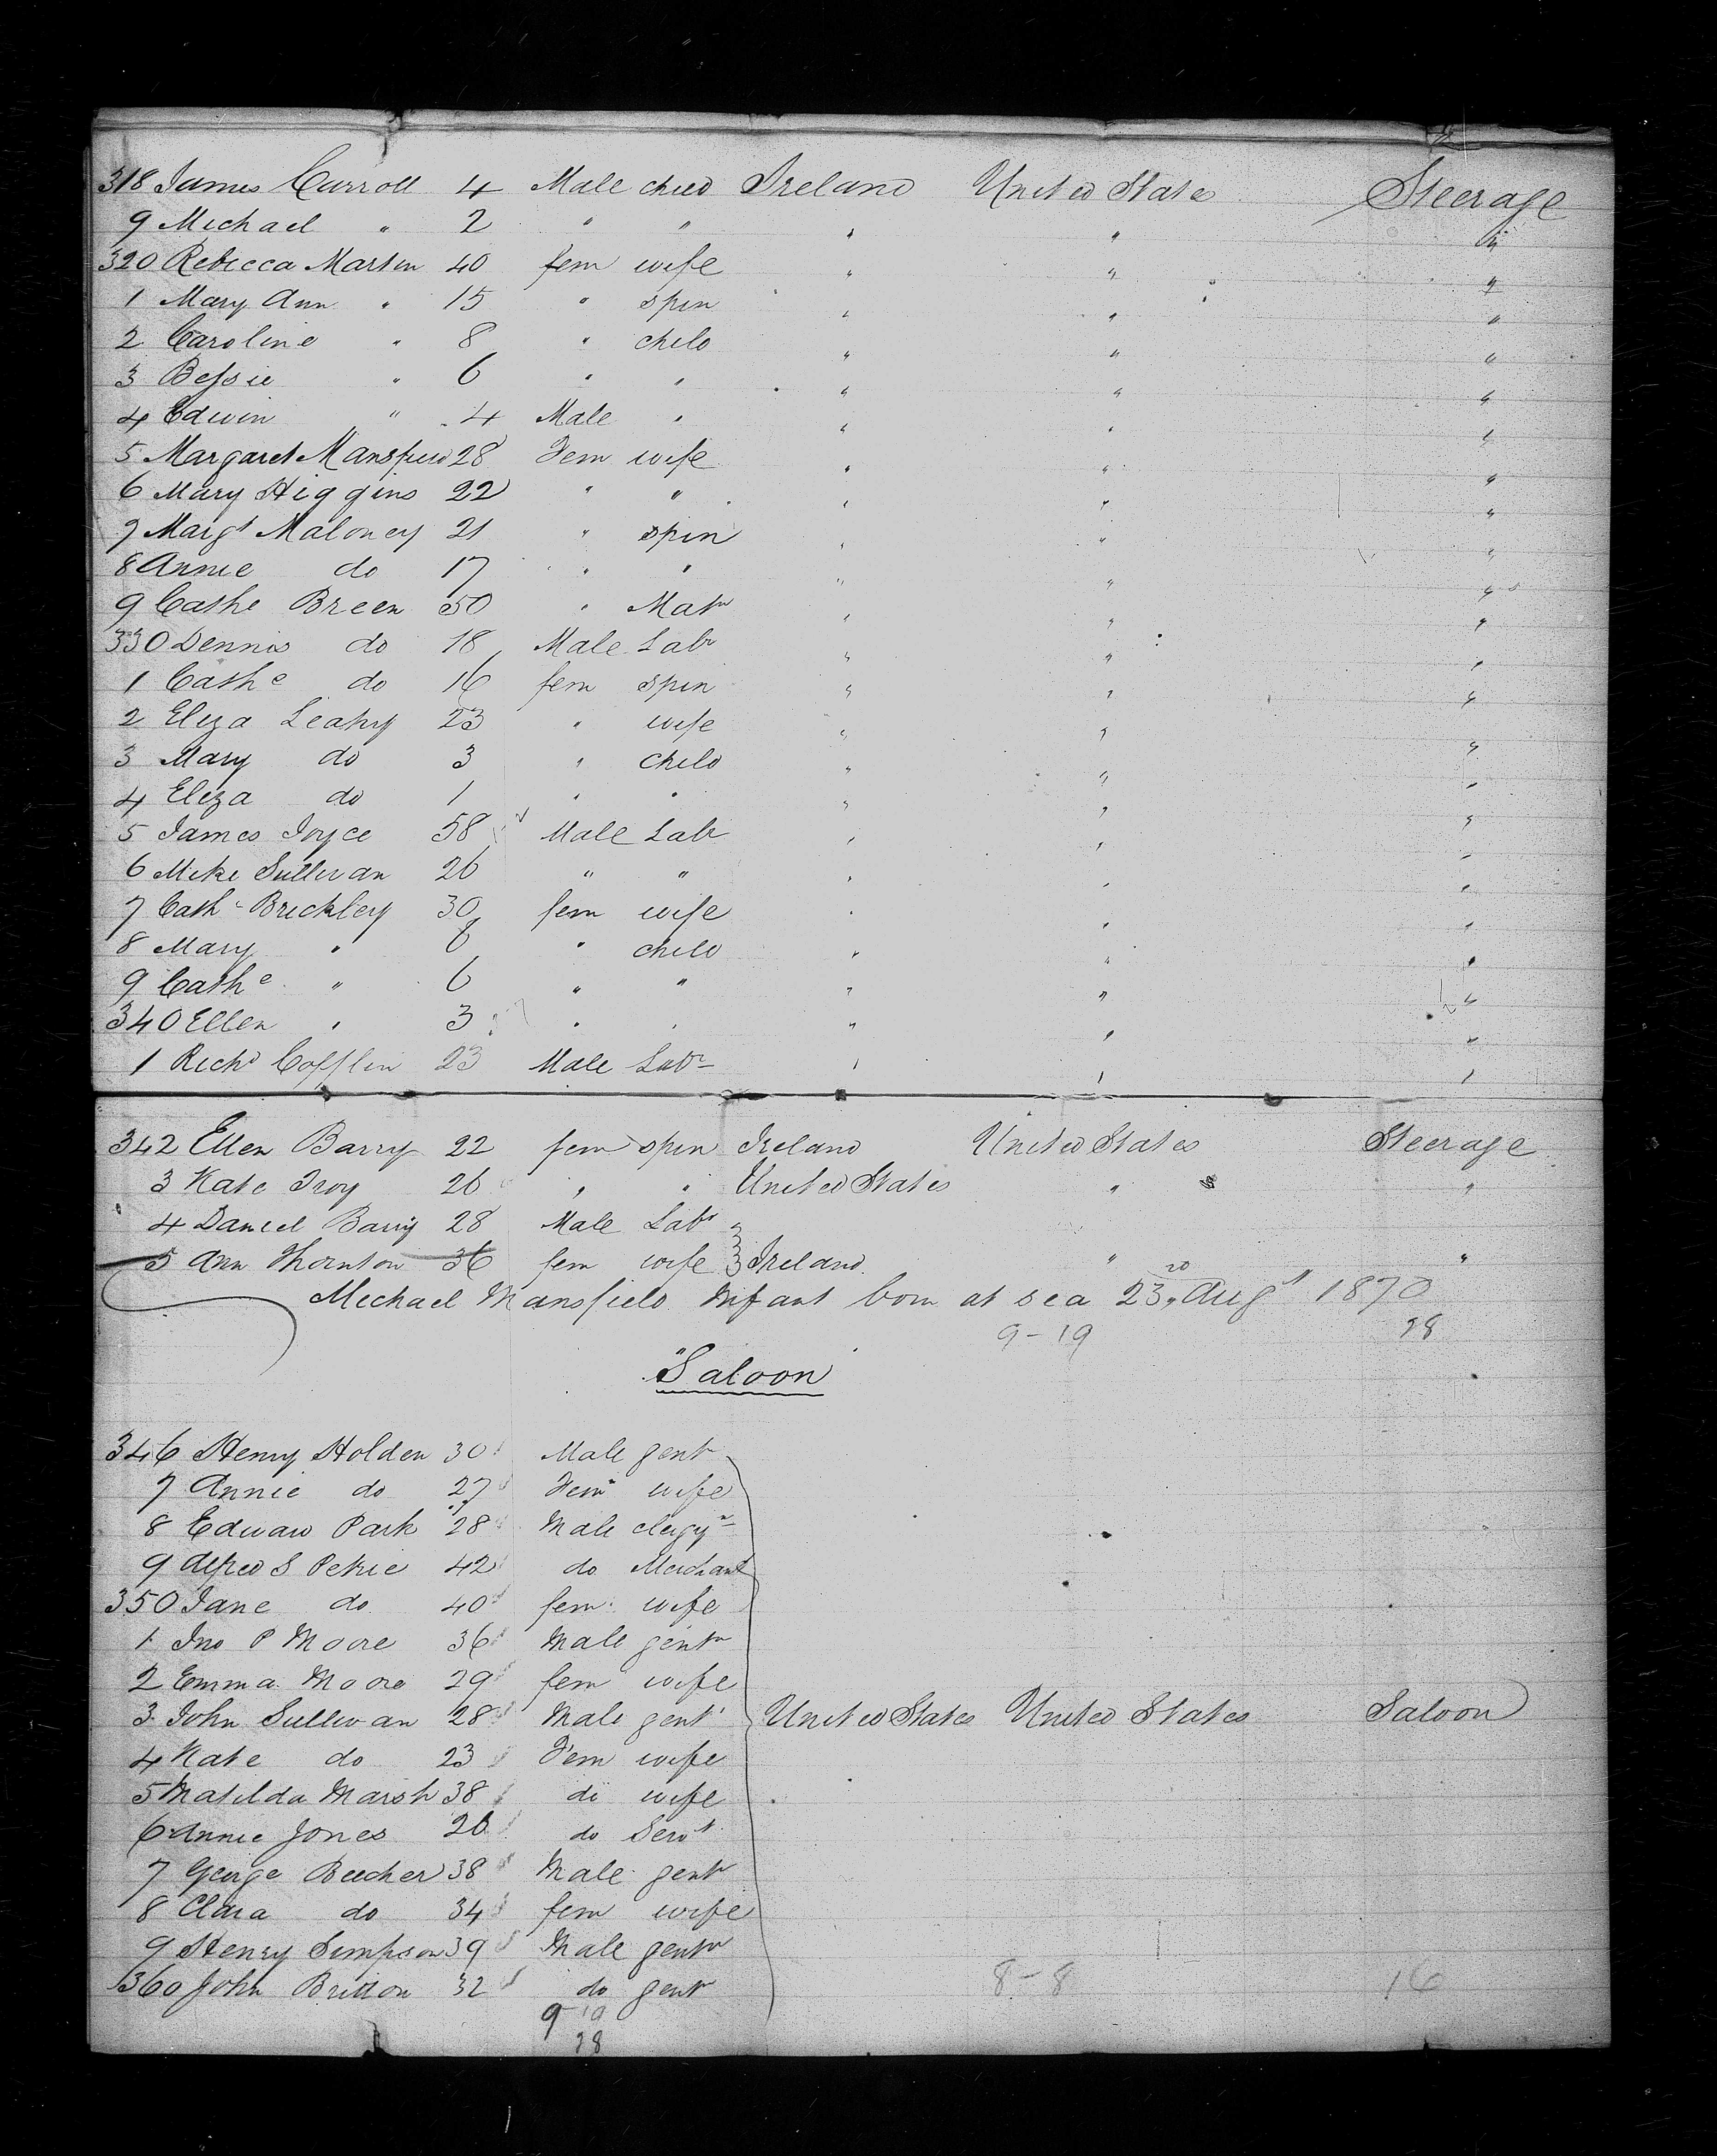 318 James Carroll 4 Male child Ireland United States Steerage
9 Michael " 2 " " " " "
320 Rebecca Martin 40 fem wife " " "
1 Mary Ann " 15 " spin " " "
2 Caroline " 8 " child " " "
3 Bessie " 6 " " " " "
4 Edwin " 4 Male " " " "
5 Margaret Mansfield 28 Fem wife " " "
6 Mary Higgins 22 " " " " "
7 Margt Maloney 21 " spin " " "
8 Annie do 17 " " " " "
9 Cathe Breen 50 " Matn " " "
330 Dennis do 18 Male Labr " " "
1 Cathe do 16 fem spin " " "
2 Eliza Leahy 23 " wife " " "
3 Mary do 3 " child " " "
4 Eliza do 1 " " " " "
5 James Joyce 58 Male Labr " " "
6 Mike Sullivan 26 " " " " "
7 Cathe Brickley 30 fem wife " " "
8 Mary " 8 " child " " "
9 Cathe " 6 " " " " "
340 Ellen " 3 " " " " "
1 Richd Cofflin 23 Male Labr " " "
342 Ellen Barry 22 fem spin Ireland United States Steerage
3 Kate Troy 26 " " United States " "
4 Daniel Barry 28 Male Labr
5 Ann Thornton 36 fem wife Ireland " "
Michael Mansfield Infant born at sea 23rd Augt 1870
9-19 28
"Saloon"
346 Henry Holden 30 Male gentn
7 Annie do 27 Fem wife
8 Edward Park 28 Male clergyn
9 Alfred S Petrie 42 do Merchant
350 Jane do 40 fem wife
1 Jno P Moore 36 Male gentn
2 Emma Moore 29 fem wife
3 John Sullivan 28 Male gent United States United States Saloon
4 Kate do 23 Fem wife
5 Matilda Marsh 38 do wife
6 Annie Jones 20 do Servt
7 George Beecher 38 Male gentn
8 Clara do 34 fem wife
9 Henry Simpson 39 Male gentn
360 John Britton 32 do gentn 8-8 16
9 19
28